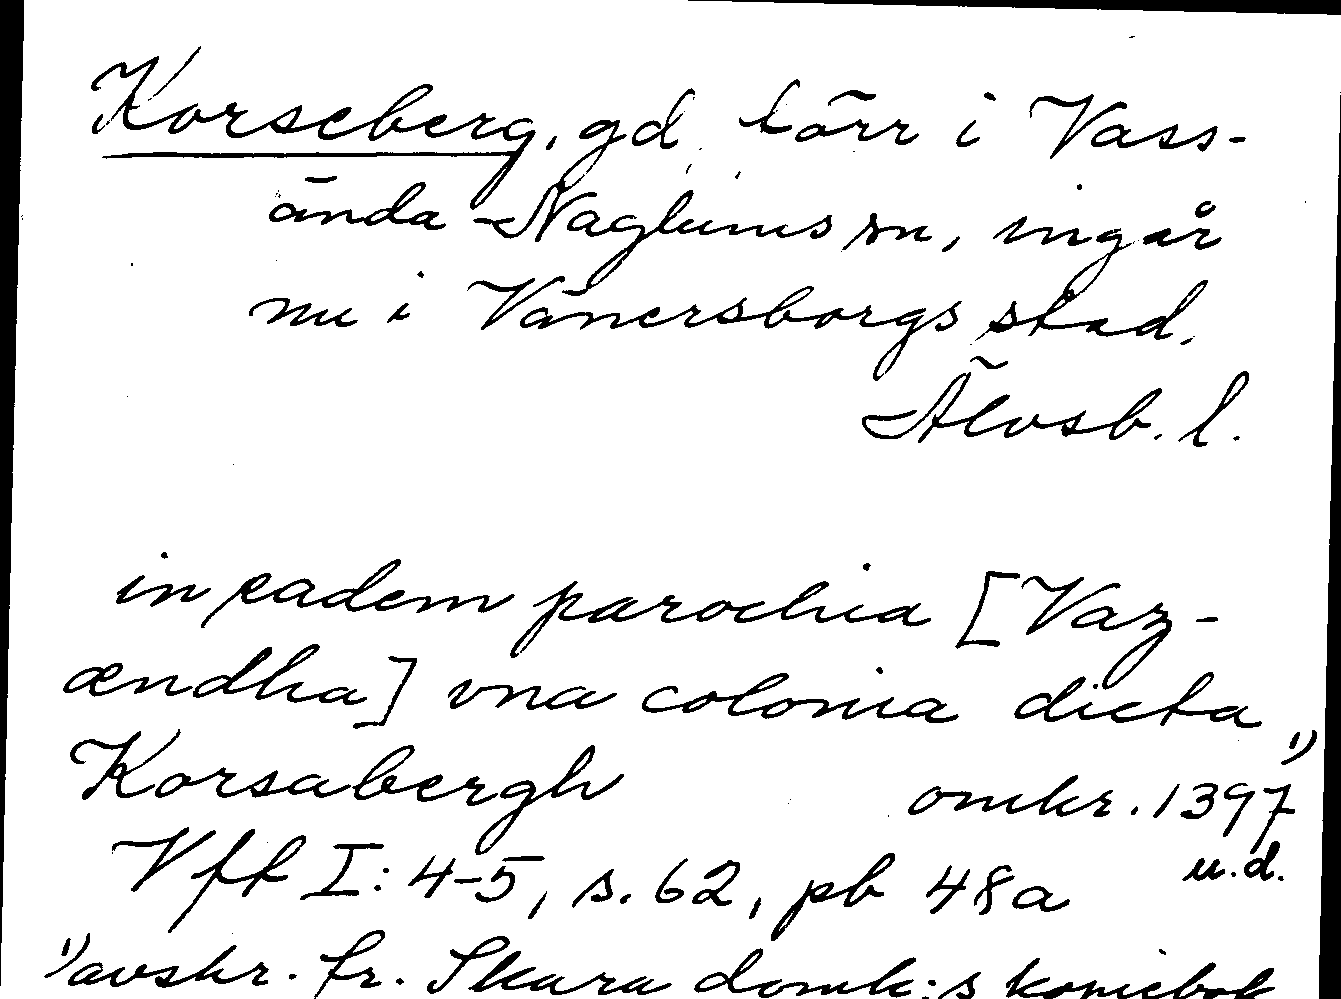 Korseberg, gd, förr i Vass-
ända-Naglums sn, ingår
nu i Vänersborgs stad.
Älvsb. l.
in eadem parochia [Vaz-
ændha] vna colonia dicta
Korsabergh omkr. 1397 1)
Vff I: 4-5, s. 62, pb 48a u.d.
1) avskr. fr. Skara domk:s kopiebok